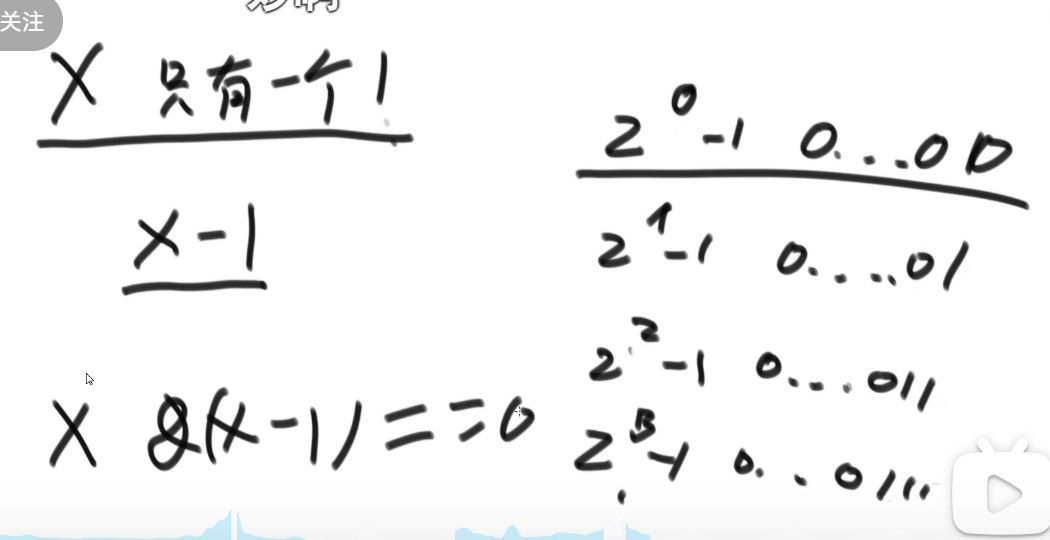 关注
X 只有一个1
x-1
X &(x-1)==0
2^0-1 0...00
2^1-1 0....01
2^2-1 0...011
2^3-1 0...0111